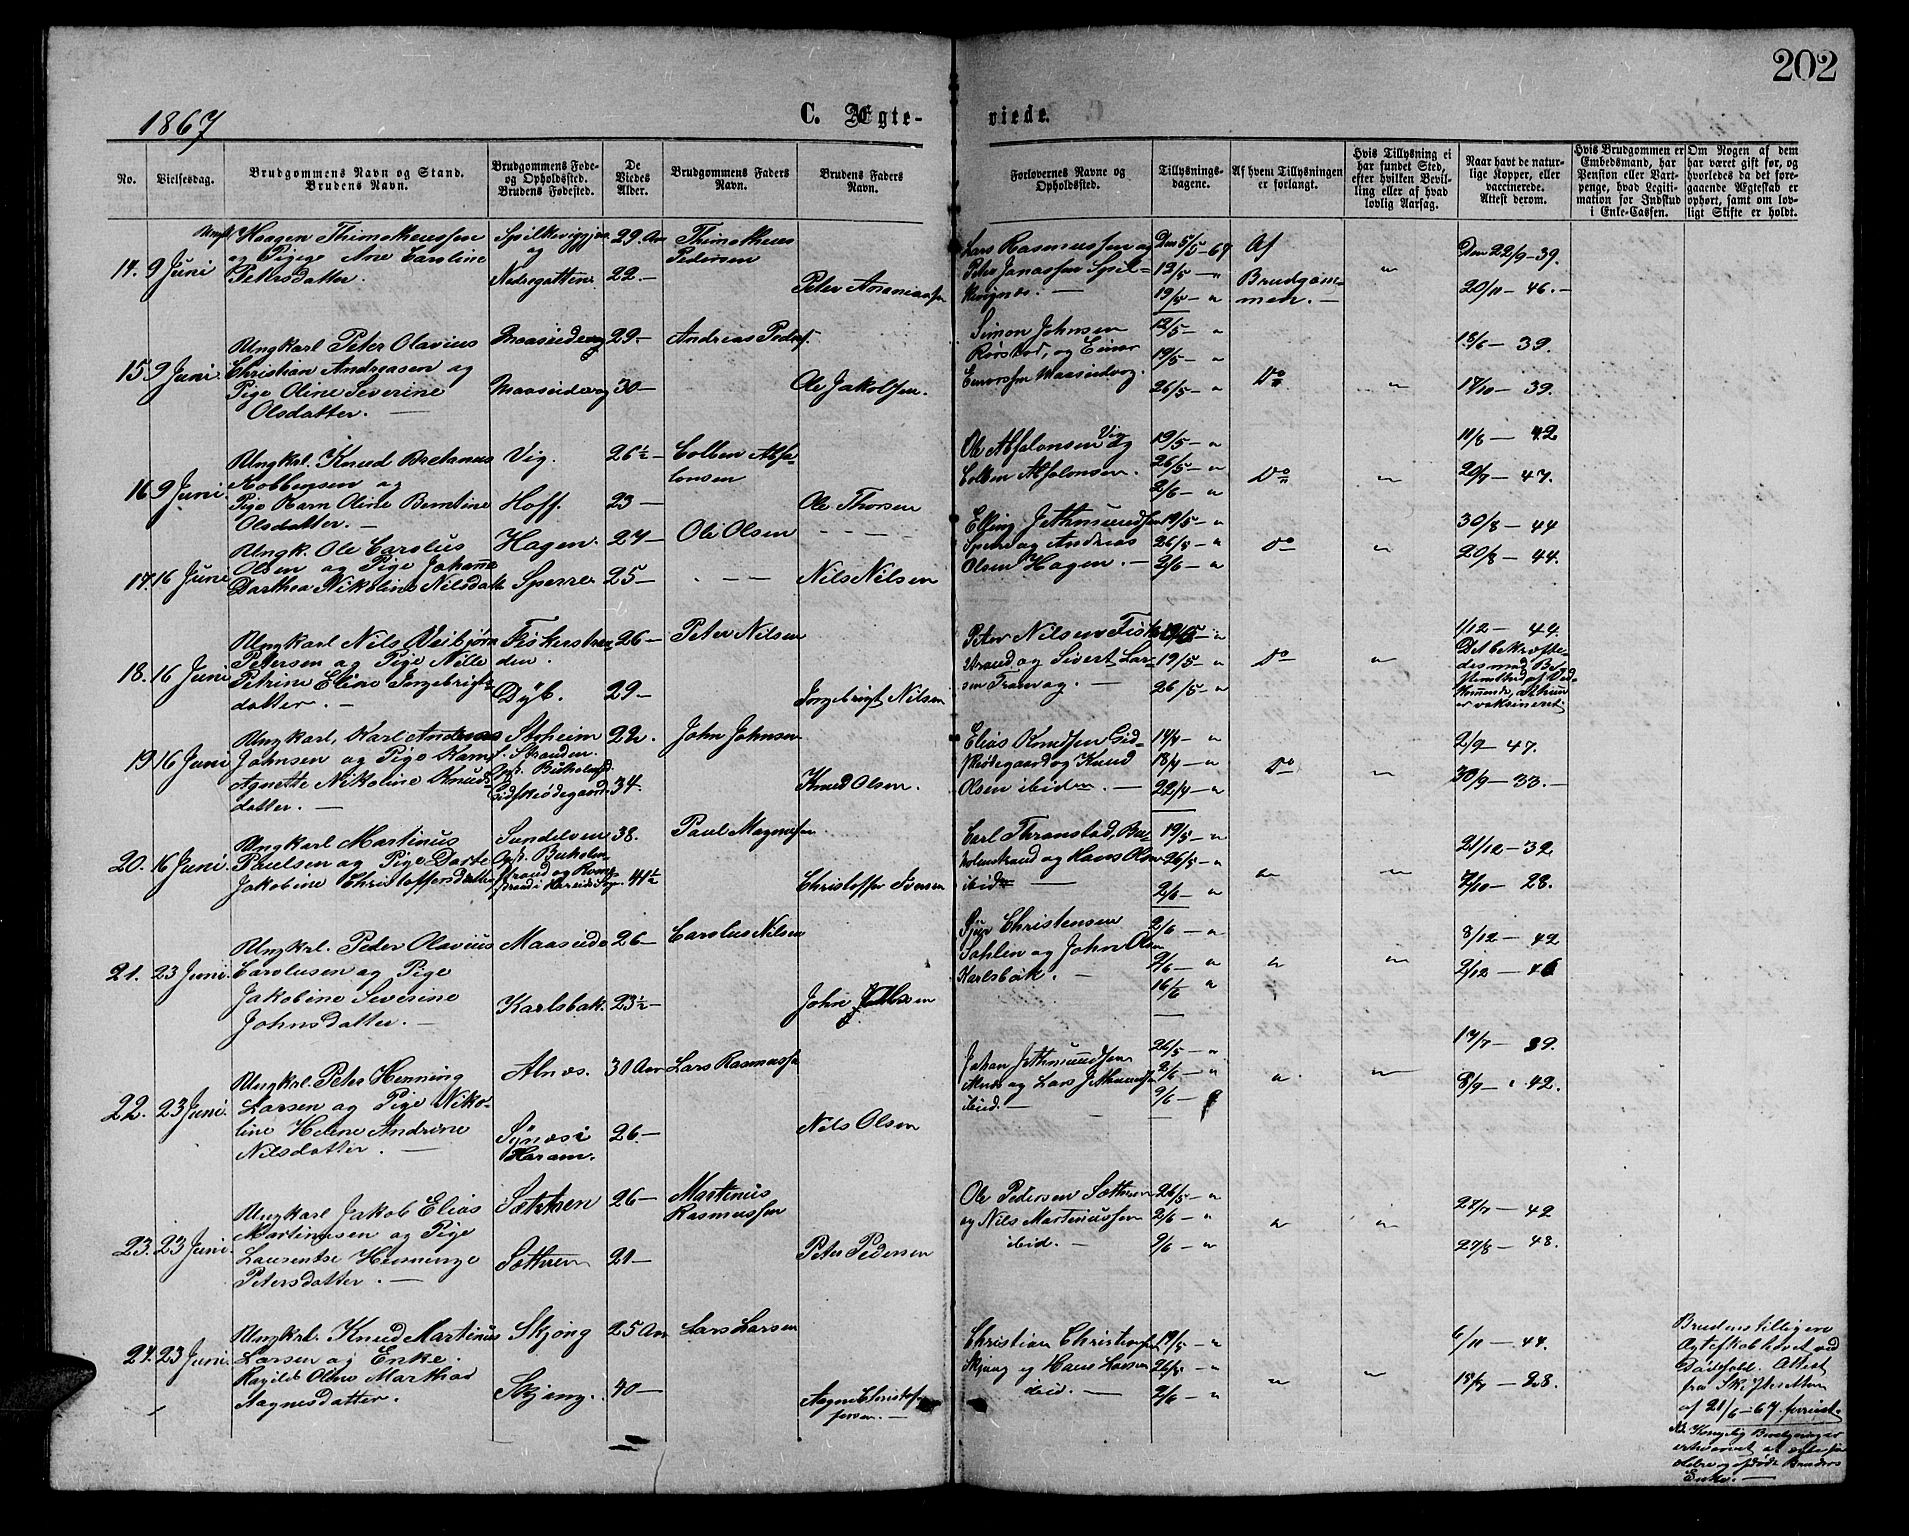 202
1867
C. Ægte-
viede.
No.
Vielsesdag.
Brudgommens Navn og Stand.
Brudens Navn.
Brudgommens Føde-
og Opholdssted.
Brudens Fødested.
De
Viedes
Alder.
Brudgommens Faders
Navn.
Brudens Faders
Navn.
Forlovernes Navne og
Opholdssted.
Tillysnings-
dagene.
Af hvem Tillysningen
er forlangt.
Hvis Tillysning ei
har fundet Sted,
efter hvilken Bevil-
ling eller af hvad
lovlig Aarsag.
Naar havt de natur-
lige Kopper, eller
vaccinerede.
Attest derom.
Hvis Brudgommen er
Embedsmand, har
Pension eller Vart-
penge, hvad Legiti-
mation for Indskud
i Enke-Cassen.
Om Nogen af dem
har været gift før, og
hvorledes da det fore-
gaaende Ægteskab er
ophørt, samt om lov-
ligt Skifte er holdt.
14. 9 Juni
Haagen Thimotheussen
og Pige Ane Caroline
Petersdatter.
og
Nedregotten
29. Aar
22 —
Thimotheus
Pedersen
Peter Ananiassen
Lars Rasmussen og
Peter Jonassen Spil-
Den 5/5-67
12/5 — "
19/5 — "
Af
Brudgom-
men. —
"
Den 22/9-39.
20/11 — 46. —
15. 9 Juni.
Ungkarl Peter Olavius
Christian Andreassen og
Pige Oline Severine
Olsdatter. —
Maaseidvog
Maaseidvog
29 —
30 —
Andreas Peders.
Ole Jakobsen.
Simon Johnsen
Rørstad, og Einar
Einarssen Maaseidvog.
12/5 — "
19/5 — "
26/5 — "
Do
"
18/6 — 39.
17/10 — 39.
16. 9 Juni.
Ungkrl. Knud Bretanus
Kolbensen og
Pige Karn Oline Berntine
Olsdatter. —
Vig.
Hoff.
26½ —
23 —
Colben Absa-
lonsen
Ole Thorsen
Ole Absalonsen Vig og
Colben Absalonsen.
19/5 — "
26/5 — "
2/6 — "
Do
"
11/8 — 42
20/7 — 47.
17. 16 Juni
Ungk. Ole Carolus
Olsen og Pige Johanne
Darthea Nikoline Nilsdatt
Hagen.
Sperre.
27 —
25 —
Ole Olsen
Nils Nilsen
Elling Jethmundsen
Sperre og Andreas
Olsen Hagen. —
19/5 — "
26/5 — "
2/6 — "
Do
"
30/8 — 44
20/8 — 44.
18. 16 Juni
Ungkarl Nils Veibjørn
Petersen og Pige Nille
Petrine Eline Ingebrigts-
datter. —
Fiskerstran
den.
Dyb.
26 —
29 —
Peter Nilsen
Ingebrigt Nilsen
Peter Nilsen Fisker-
strand og Sivert Lar-
sen Tranvag. —
19/5 — "
26/5 — "
Do
"
1/12 — 44.
Det bekræfte-
des med Be-
at hun
er vaksineret.
19. 16 Juni
Ungkarl, Karl Andreas
Johnsen og Pige Karn
Agnette Nikoline Knuds-
datter. —
Storheim
i Stranden.
Opb. Buholmsd.
Gidskeødegaard.
22.
34.
John Johnsen
Knud Olsen.
Elias Knudsen Gid-
skeødegaard og Knud
Olsen ibidem. —
14/4 — "
18/4 — "
22/4 — "
Do
"
2/9 — 47.
30/9 — 33. —
20. 16 Juni.
Ungkarl Martinus
Paulsen og Pige Dorte
Jakobine Christoffersdatter
Sundelven
Opb. Buholm-
38.
41½
Paul Magnussen
Christoffer Iversen
Carl Thranstad, Bu-
holmstrand og Hans Olsen
ibid —
19/5 — "
26/5 — "
2/6 — "
"
"
21/12 — 32.
7/10 — 28.
21. 23 Juni.
Ungkrl. Peder Olavius
Carolusen og Pige
Jakobine Severine
Johnsdatter. —
Maaseide
Karlsbak.
26 —
23½ —
Carolus Nilsen
John
Christensen
Sahlen og John Olsen
Karlsbak. —
2/6 — "
9/6 — "
16/6 "
"
"
8/12 — 42
2/12 — 46
22. 23 Juni.
Ungkrl. Peter Henning
Larsen og Pige Niko-
line Helene Andrine
Nilsdatter. —
Alnæs.
Synæs i
Haram.
30 Aar
26 —
Lars Rasmussen
Nils Olsen
Johan Jethmundsen
Alnæs og Lars Jethmundsen
ibid. —
26/5 — "
2/6 — "
9/6 —
"
"
17/7 — 39.
8/9 — 42.
23. 23 Juni.
Ungkarl Jakob Elias
Martinusen og Pige
Laurentse Henninge
Petersdatter. —
Sæthren
Sæthren
26 —
21 —
Martinus
Rasmussen
Peter Pedersen
Ole Pedersen Sæthren
og Nils Martinussen
ibid. —
26/5 — "
2/6 — "
9/6 — "
"
"
28/7 — 42
27/8 — 48.
24. 23 Juni.
Ungkrl. Knud Martinus
Larsen og Enke.
Ragilde Oline Marthea
Aagnesdatter.
Skjong
Skjong.
25 Aar
40 —
Lars Larsen
Aagne Christof-
fersen. —
Christian Christiansen
Skjong og Hans Lassen
ibid. —
19/5 — "
26/5 — "
2/6 — "
"
"
6/11 — 44.
18/7 — 28.
Brudens tidligere
Ægteskab hævet ved
Dødsfald. Attest
fra Skifteretten
af 21/6 — 67 forevist.
Nb. Kongelig Bevilgning er
erhvervet at ægte sin
afdøde Broders
Enke. —